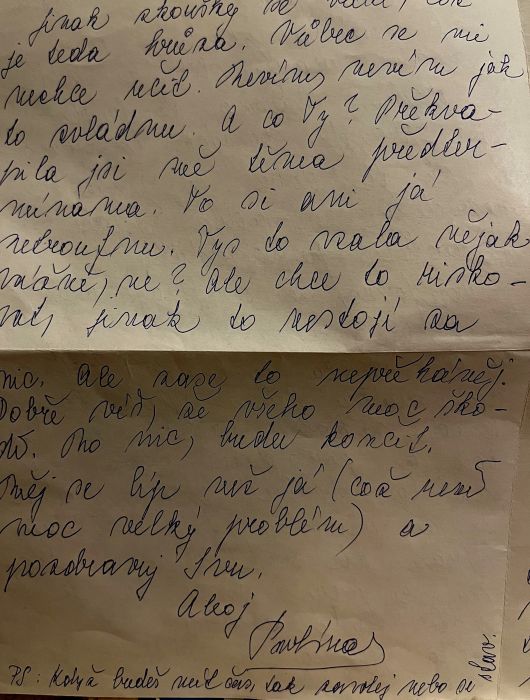 jinak zkoušky se valí, což
je teda hrůza. Vůbec se mi
nechce učit. Nevím, nevím jak
to zvládnu. A co Ty? Překva-
pila jsi mě těma předter-
mínama. To si ani já
netroufnu. Tys to vzala nějak
vážně, ne? Ale chce to risko-
vat, jinak to nestojí za
nic. Ale zase to nepřeháněj.
Dobře víš, že všeho moc ško-
dí. No nic, budu končit.
Měj se líp než já (což není
moc velký problém) a
pozdravuj Ivu.
Ahoj
Pavlína
PS: Když budeš mít čas, tak zavolej nebo se stav.